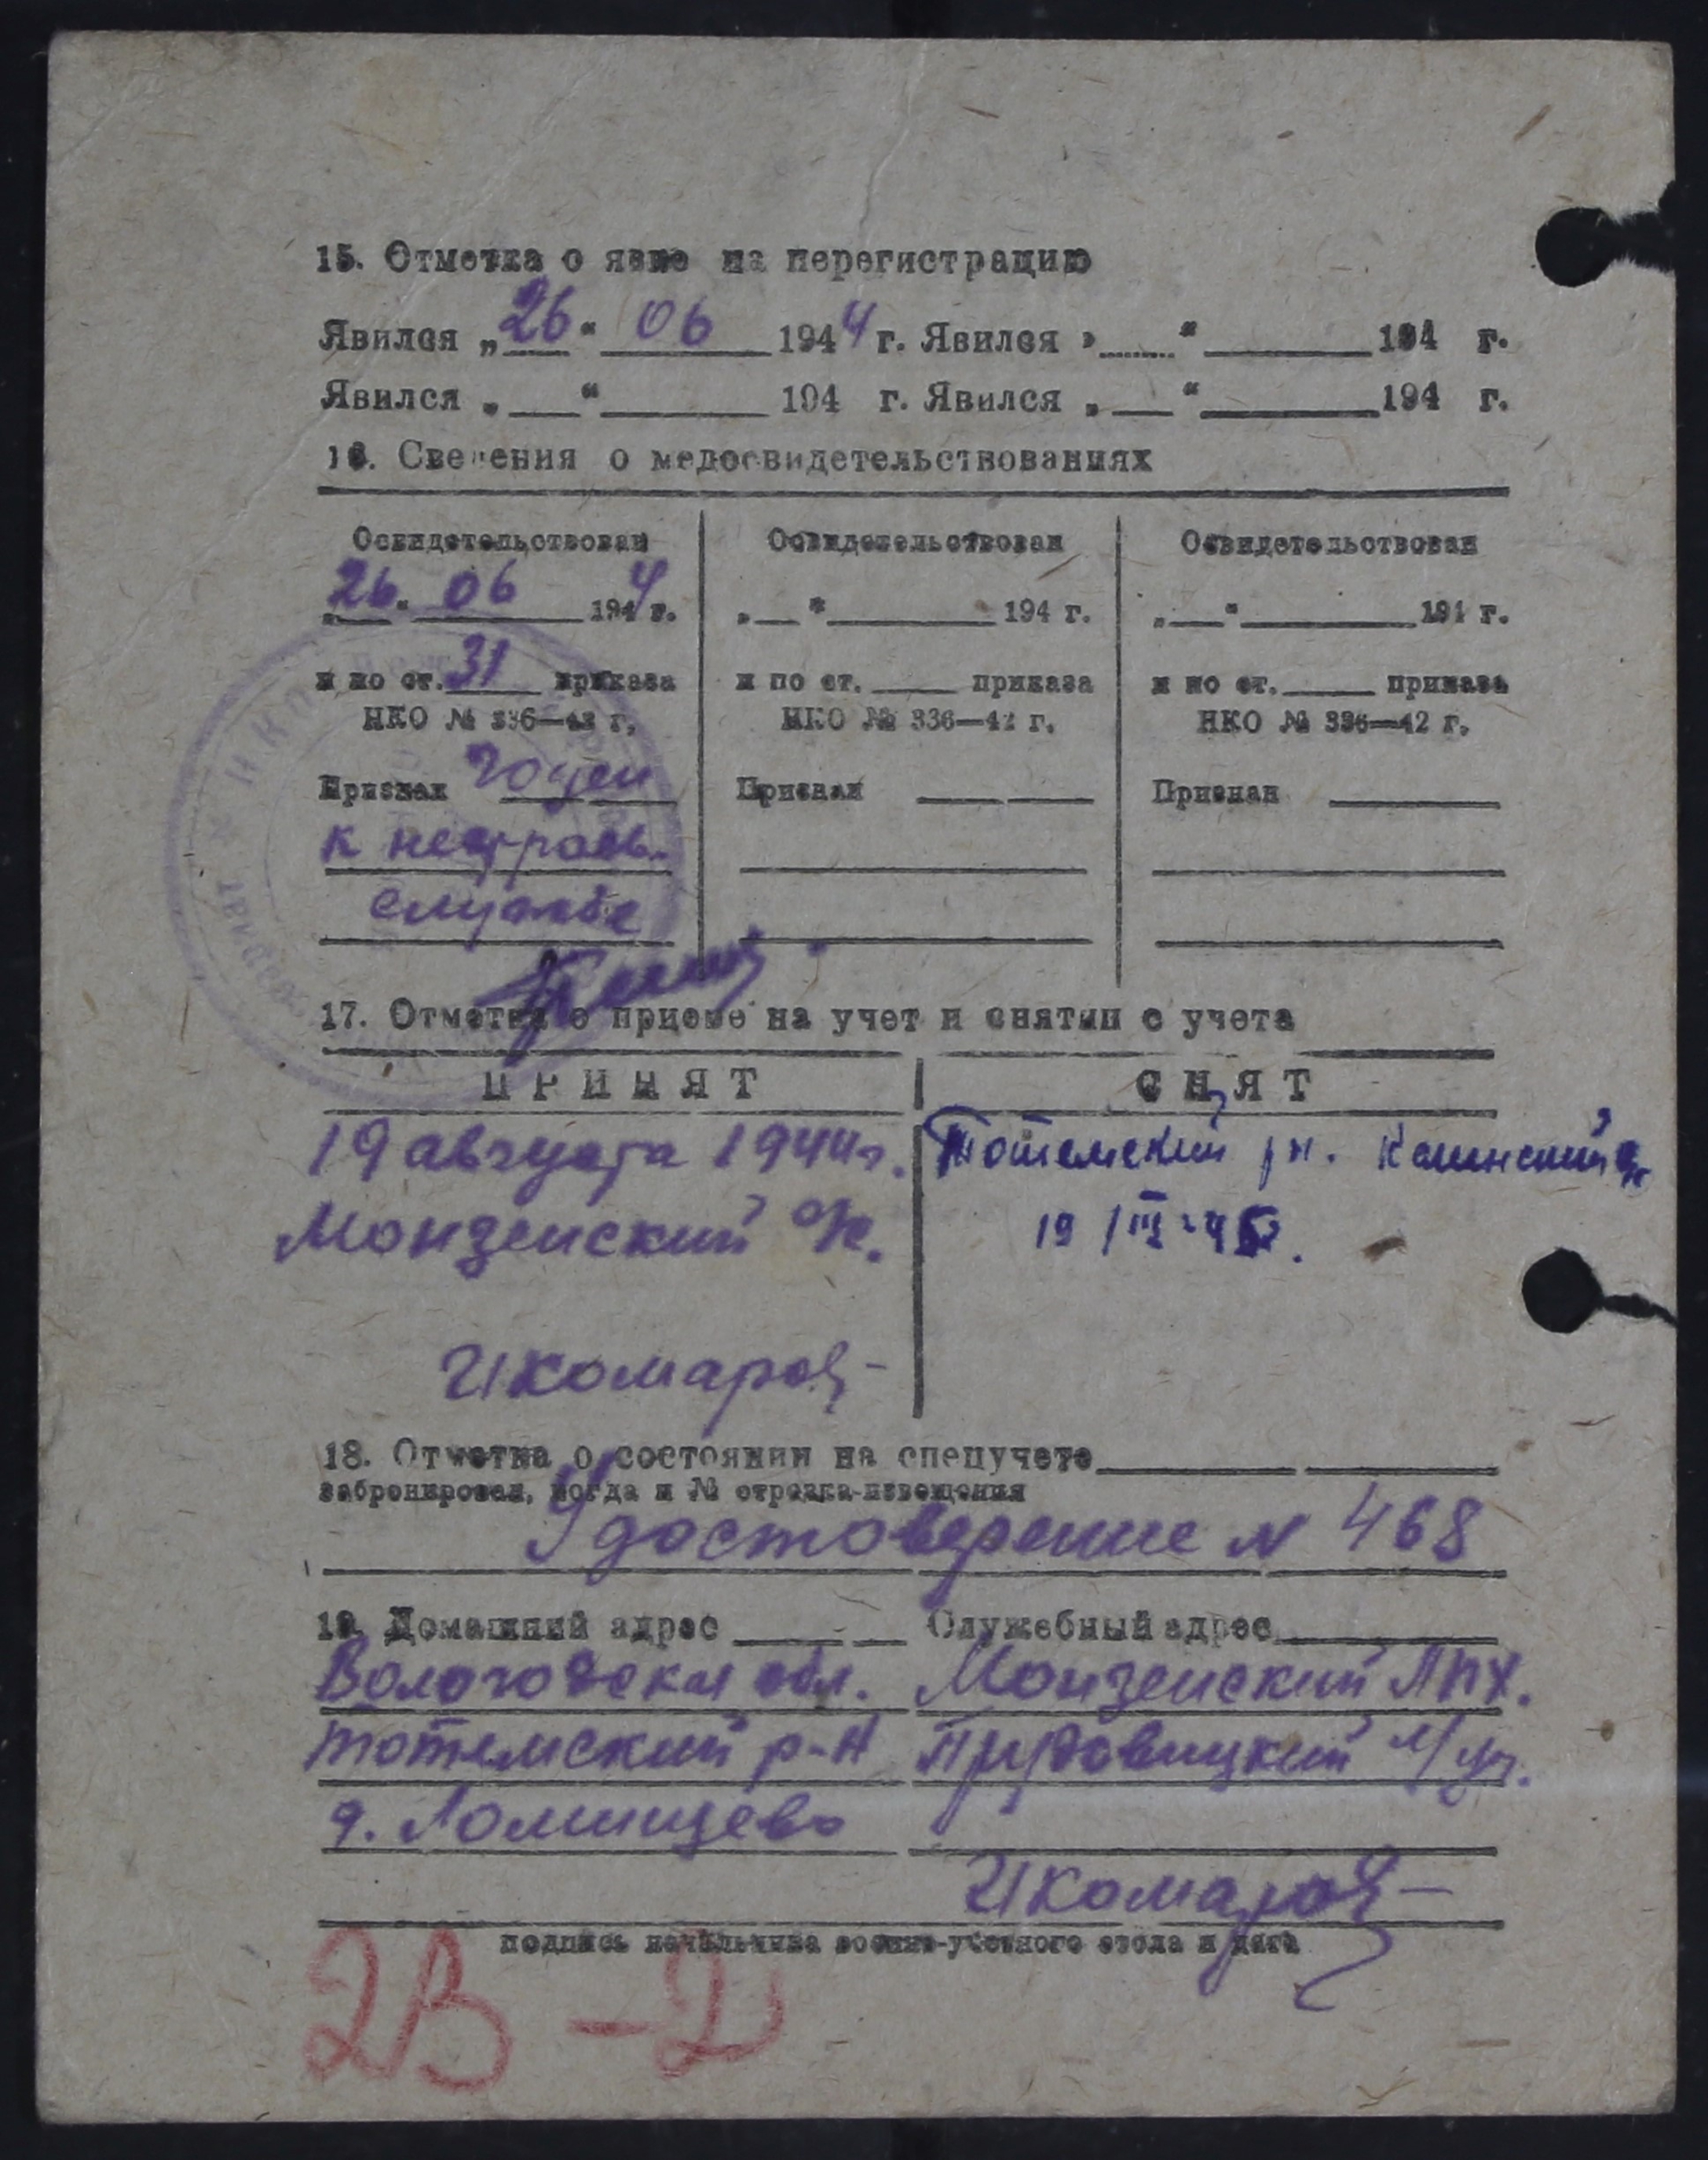 15. Отметка о явке на перегистрацию
Явился „26“ 06 1944 г. Явился „___“ ______ 194 г.
Явился „___“ ______ 194 г. Явился „___“ ______ 194 г.
16. Сведения о медосвидетельствованиях
Освидетельствован Освидетельствован Освидетельствован
„26“ 06 1944 г. „___“ ______ 194 г. „___“ ______ 194 г.
и по ст. 31 приказа и по ст. ____ приказа и по ст. ____ приказа
НКО № 336—42 г. НКО № 336—42 г. НКО № 336—42 г.
Признан годен Признан ______ Признан ______
к нестроев.
службе
17. Отметка о приеме на учет и снятии с учета
ПРИНЯТ СНЯТ
19 августа 1944г. Тотемский рн. Калинский
Монзенский 19/III-45.
ИКомаров
18. Отметка о состоянии на спецучете
забронирован, когда и № отрезка-извещения
Удостоверение N 468
19. Домашний адрес ______ Служебный адрес ______
Вологодская обл. Монзенский ЛПХ.
Тотемский р-н Прудовицкий м/уч.
д. Ломищево
ИКомаров
подпись начальника военно-учетного стола и дата
2В-2